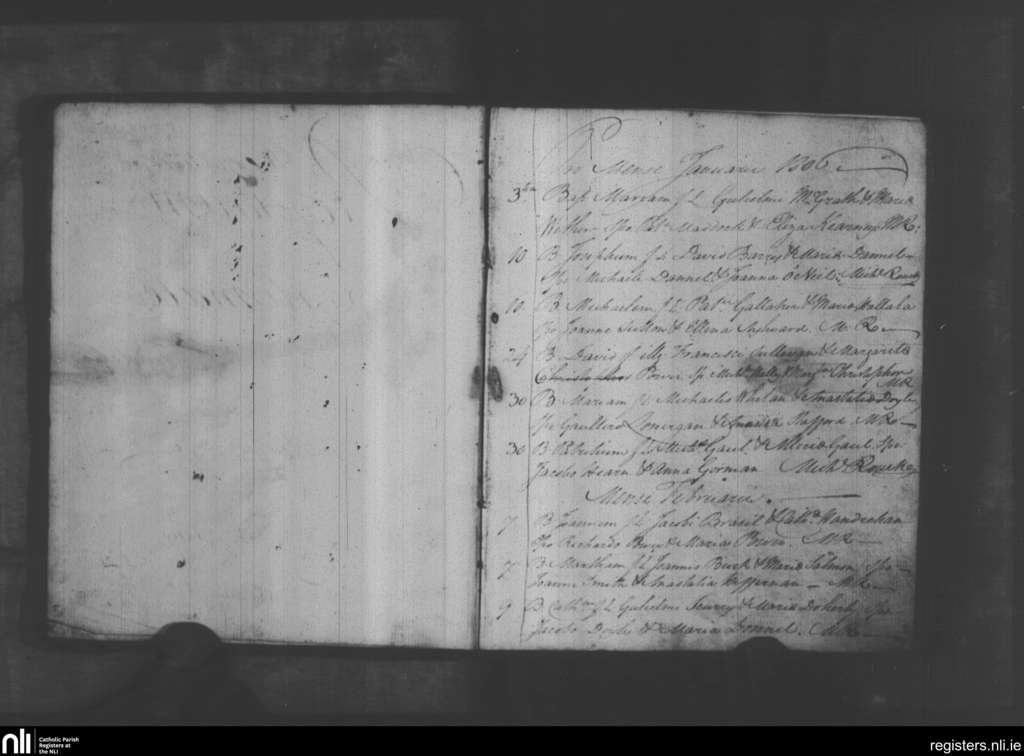 Pro Mense Januarii 1806
3 Bap Mariam f L Gulielmi McGrath & Maria
Spo Patt Maddock & Eliza Kearney MR
10 B Josephum f L David Barry & Maria Dannel
Spo Michaele Dannel & Joanna O'Neil Michl Rourke
10 B Michaelem f L Patt Gallaher & Maria Hallala
Spo Joanne Sutton & Ellena M R
24 B David f illg Francisci Sullivan & Margarita
Power Sp Michl Kelly & Christopher
MR
30 B Mariam f L Michaelis Whelan & Anastatia Doyle
Sp Gaultiero Lonergan & Stafford MR
30 B Patricium f L Michl Gaul & Maria Gaul Spo
Jacobo Hearn & Anna Gorman Michl Rourke
Mense Februarii
7 B f L Jacobi Brasil & Cath Handrahan
Spo Richardo Power & Maria Power MR
7 B Martham f L Joannis Burk & Maria Salmon Spo
Joanne Smith & Anastatia Heffernan MR
9 B Cath f L Gulielmi & Maria Doherty Spo
Jacobo Doyle & Maria Donnel MR
nli
Catholic Parish
Registers at
the NLI
registers.nli.ie